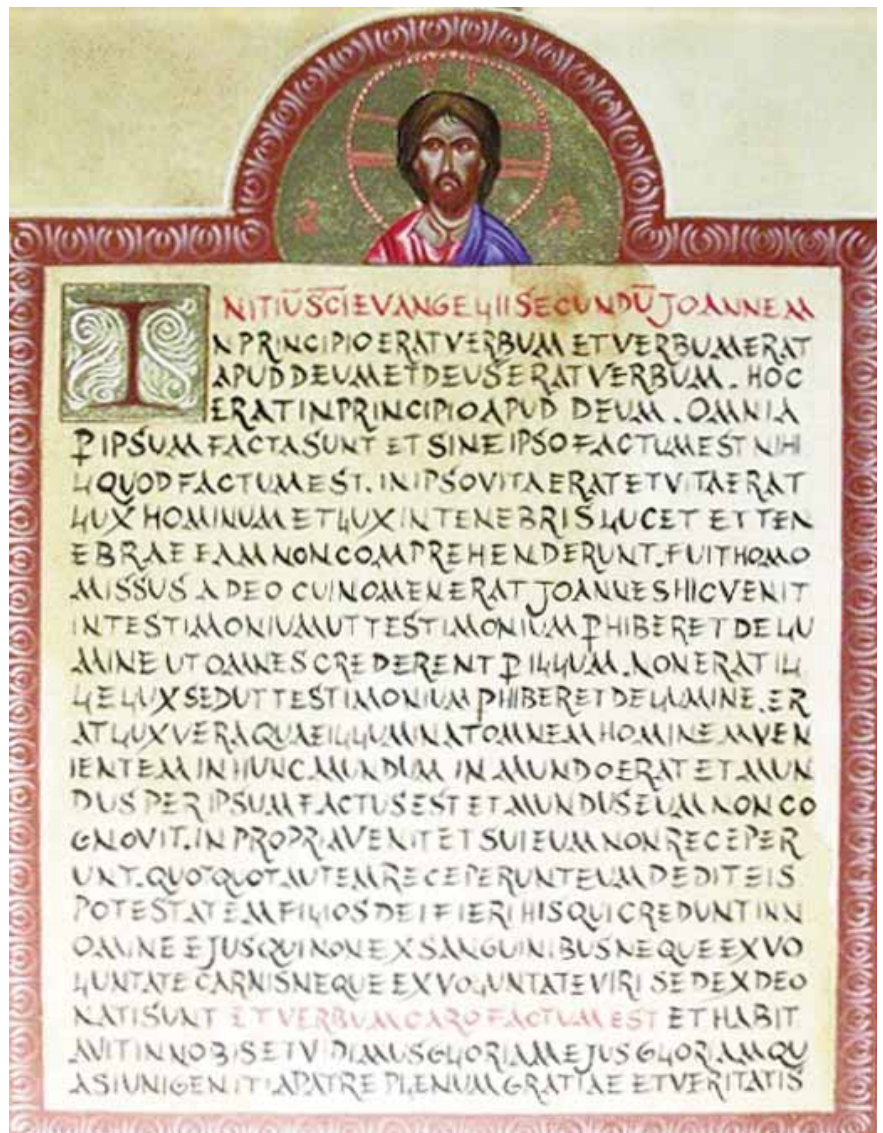 INITIŪ SC̄I EVANGELII SECUNDŪ JOANNEM
IN PRINCIPIO ERAT VERBUM ET VERBUM ERAT
APUD DEUM ET DEUS ERAT VERBUM. HOC
ERAT IN PRINCIPIO APUD DEUM. OMNIA
P IPSUM FACTA SUNT ET SINE IPSO FACTUM EST NIHI
L QUOD FACTUM EST. IN IPSO VITA ERAT ET VITA ERAT
LUX HOMINUM ET LUX IN TENEBRIS LUCET ET TEN
EBRAE EAM NON COMPREHENDERUNT. FUIT HOMO
MISSUS A DEO CUI NOMEN ERAT JOANNES HIC VENIT
IN TESTIMONIUM UT TESTIMONIUM PHIBERET DE LU
MINE UT OMNES CREDERENT P ILLUM. NON ERAT IL
LE LUX SED UT TESTIMONIUM PHIBERET DE LUMINE. ER
AT LUX VERA QUAE ILLUMINAT OMNEM HOMINEM VEN
IENTEM IN HUNC MUNDUM IN MUNDO ERAT ET MUN
DUS PER IPSUM FACTUS EST ET MUNDUS EUM NON CO
GNOVIT. IN PROPRIA VENIT ET SUI EUM NON RECEPER
UNT. QUOTQUOT AUTEM RECEPERUNT EUM DEDIT EIS
POTESTATEM FILIOS DEI FIERI HIS QUI CREDUNT IN N
OMINE EJUS QUI NON EX SANGUINIBUS NEQUE EX VO
LUNTATE CARNIS NEQUE EX VOLUNTATE VIRI SED EX DEO
NATI SUNT ET VERBUM CARO FACTUM EST ET HABIT
AVIT IN NOBIS ET VIDIMUS GLORIAM EJUS GLORIAM QU
ASI UNIGENITI A PATRE PLENUM GRATIAE ET VERITATIS